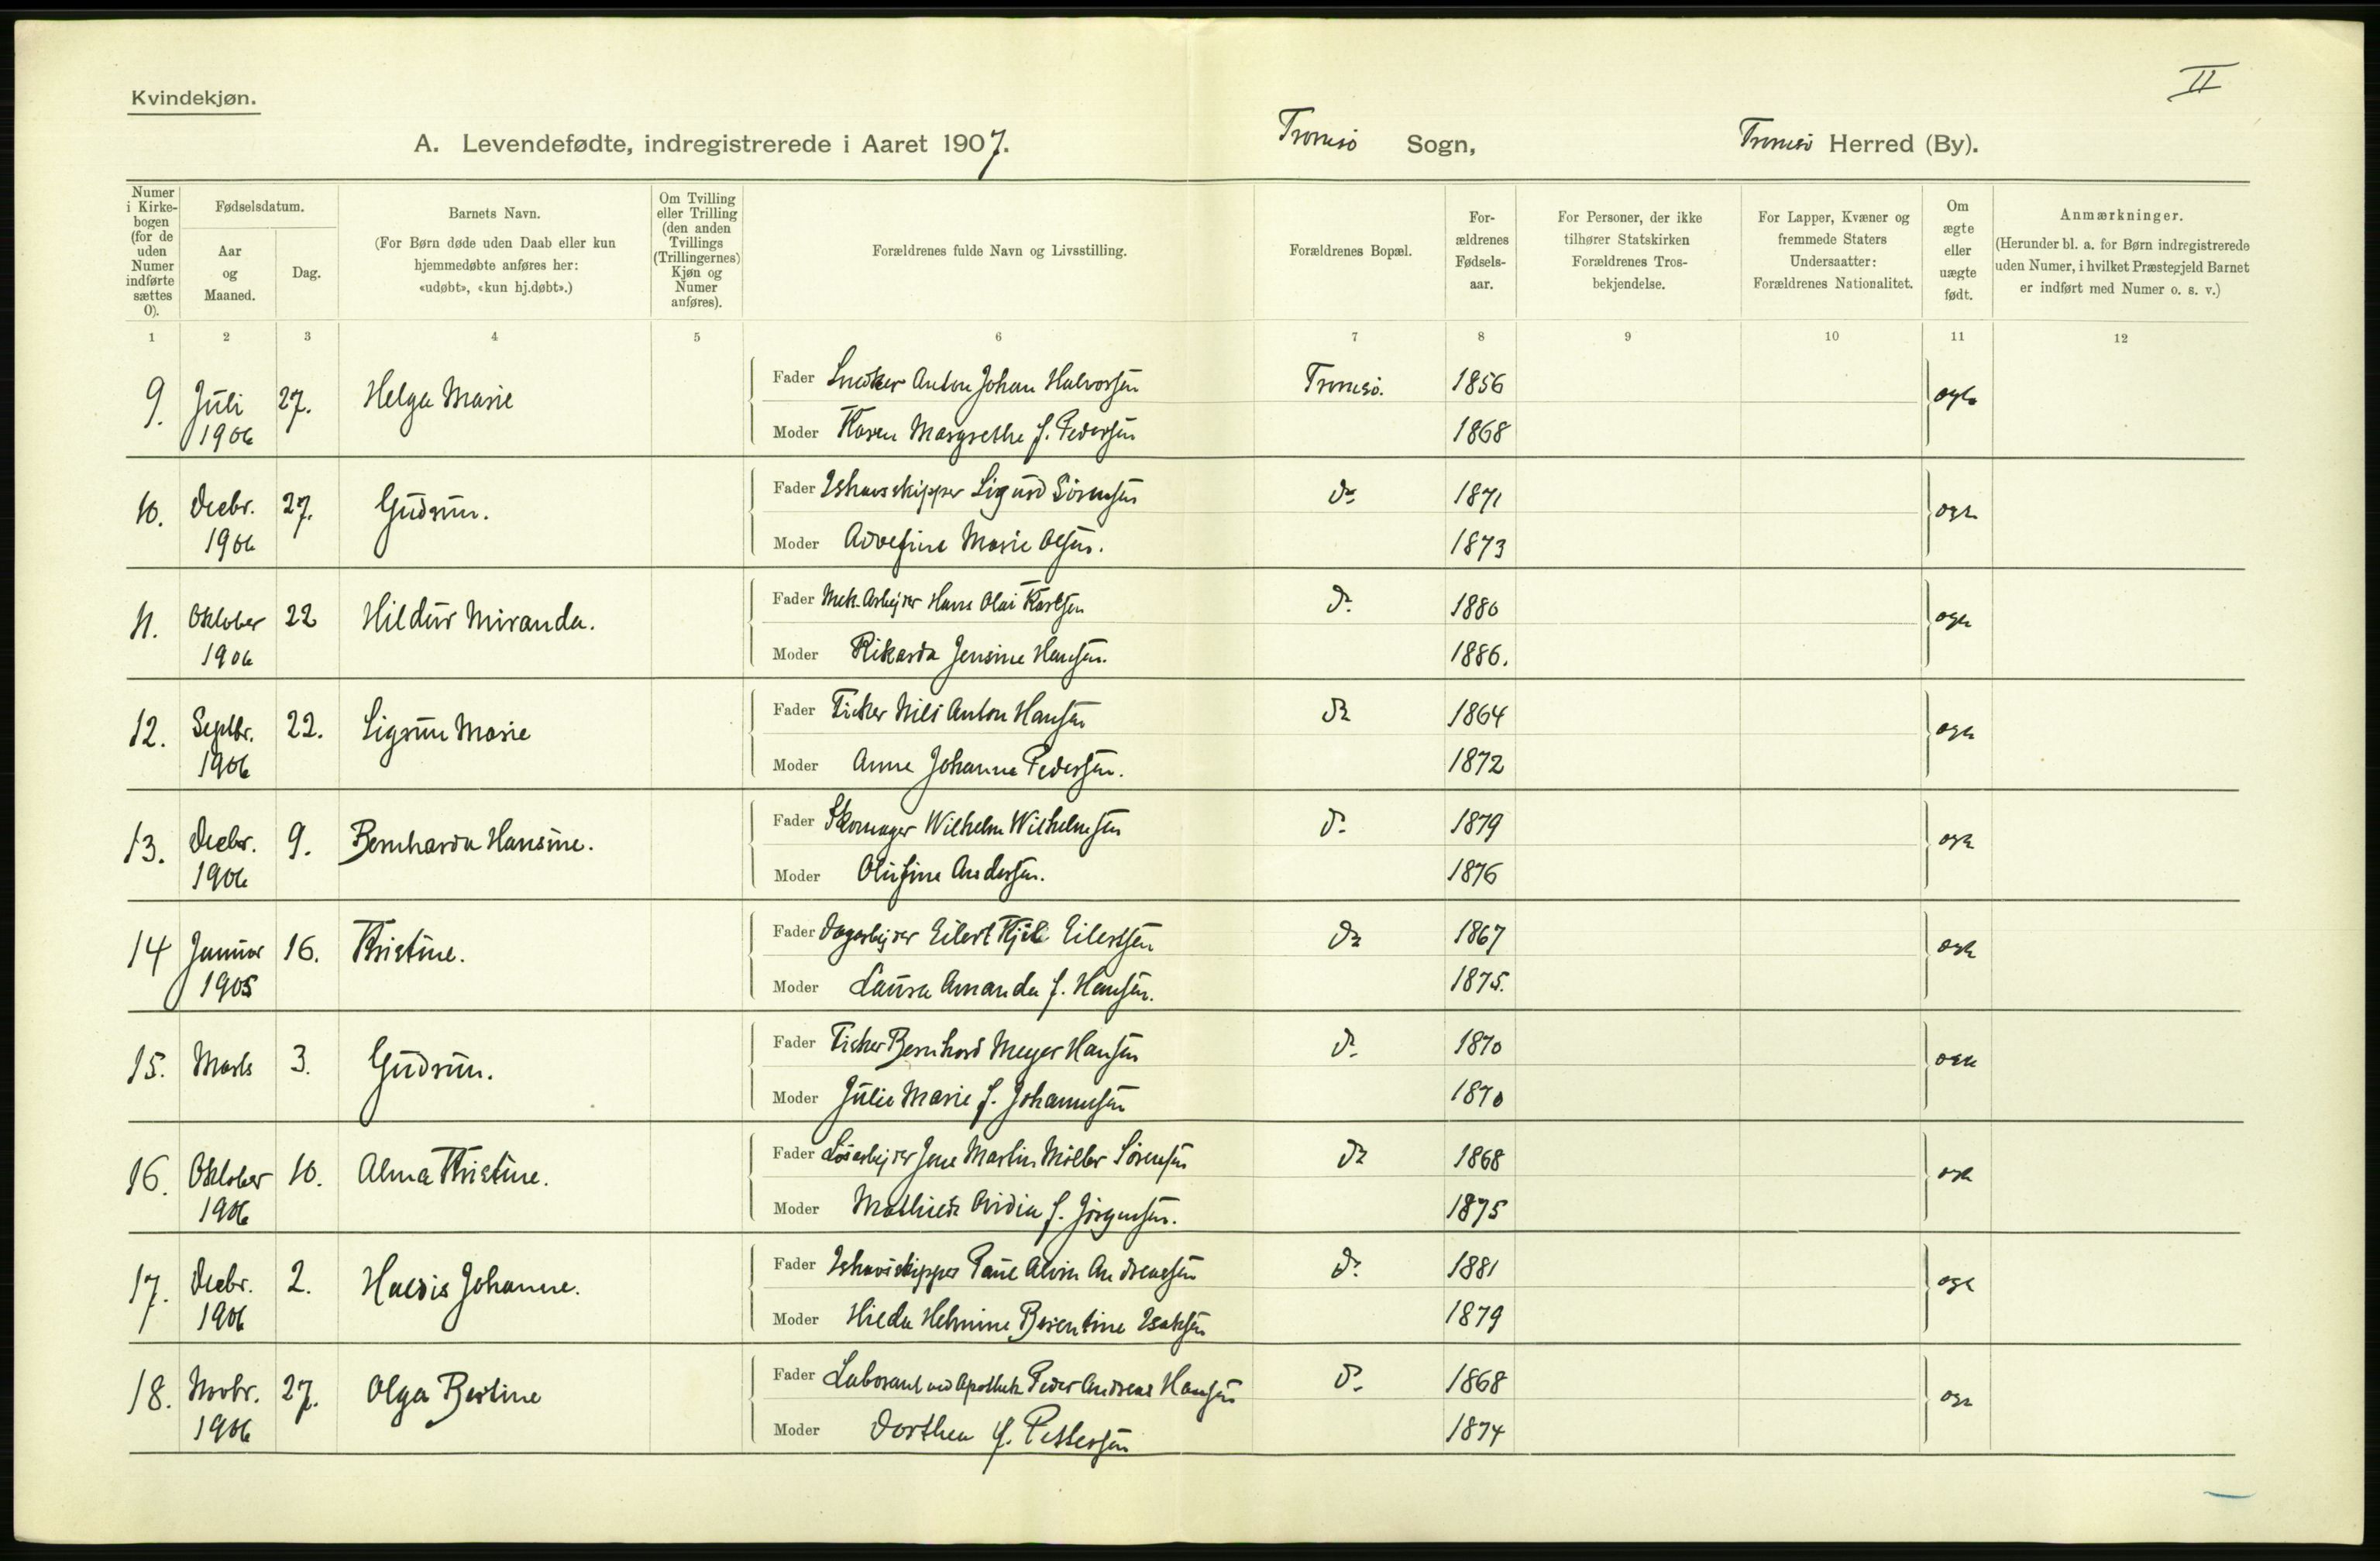 II
Kvindekjøn.
A. Levendefødte, indregistrerede i Aaret 1907. Tromsø Sogn, Tromsø Herred (By).
Numer i Kirkebogen (for de uden Numer indførte sættes 0).
Fødselsdatum.
Aar og Maaned.
Dag.
Barnets Navn.
(For Børn døde uden Daab eller kun
hjemmedøbte anføres her:
«udøbt», «kun hj.døbt».)
Om Tvilling
eller Trilling
(den anden
Tvillings
(Trillingernes)
Kjøn og
Numer
anføres).
Forældrenes fulde Navn og Livsstilling.
Forældrenes Bopæl.
For-
ældrenes
Fødsels-
aar.
For Personer, der ikke
tilhører Statskirken
Forældrenes Tros-
bekjendelse.
For Lapper, Kvæner og
fremmede Staters
Undersaatter:
Forældrenes Nationalitet.
Om
ægte
eller
uægte
født.
Anmærkninger.
(Herunder bl. a. for Børn indregistrerede
uden Numer, i hvilket Præstegjeld Barnet
er indført med Numer o. s. v.)
1 2 3 4 5 6 7 8 9 10 11 12
9. Juli 27. Helga Marie Fader Snedker Anton Johan Halvorsen Tromsø. 1856 ægte
1906 Moder Karen Margrethe f. Pedersen 1868
10. Decbr. 27. Gudrun. Fader Ishavsskipper Sigurd Sørensen do 1871 ægte
1906 Moder Advefine Marie Olsen. 1873
11. Oktober 22 Hildur Miranda. Fader Mek. Arbejder Hans Olai Karlsen do 1880 ægte
1906 Moder Rikarda Jensine Hansen. 1886.
12. Septbr. 22. Sigrun Marie Fader Fisker Nils Anton Hansen do 1864 ægte
1906 Moder Anne Johanna Pedersen. 1872
13. Decbr. 9. Bernharda Hansine. Fader Skomager Wilhelm Wilhelmsen do 1879 ægte
1906 Moder Olufine Andersen. 1876
14 Januar 16. Kristine. Fader Dagarbejder Eilert Kjil Eilertsen do 1867 ægte
1905 Moder Laura Amanda f. Hansen. 1875.
15. Marts 3. Gudrun. Fader Fisker Bernhard Meyer Hansen do 1870 ægte
Moder Julie Marie f. Johannesen 1870
16. Oktober 10. Alma Kristine. Fader Løsarbejder Jens Martin Møller Sørensen do 1868 ægte
1906 Moder Mathilde Ovidia f. Jörgensen. 1875
17. Decbr. 2. Haldis Johanne. Fader Ishavsskipper Paul Alvin Andreassen do 1881 ægte
1906 Moder Hilda Helmine Berentine Isaksen 1879
18. Novbr. 27. Olga Bertine Fader Laborant ved Apothek Peder Andreas Hansen do 1868 ægte
1906 Moder Dorthea f. Pettersen 1874